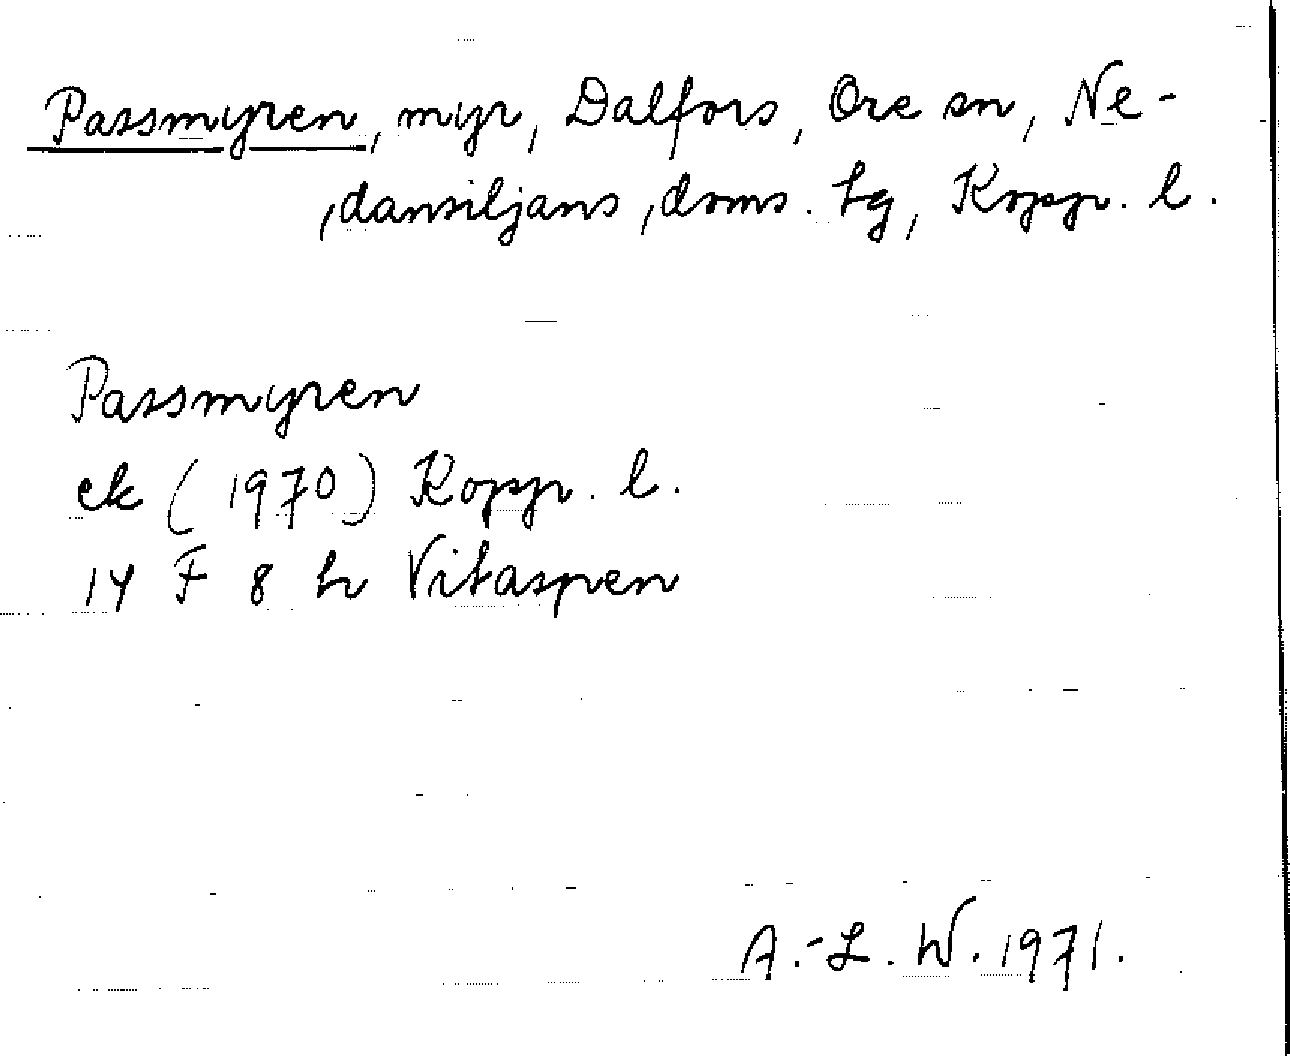 Passmyren, myr, Dalfors, Ore sn, Ne-
dansiljans doms. tg, Kopp. l.
Passmyren
ek (1970) Kopp. l.
14 F 8 h Vitaspen
A.-L. W. 1971.